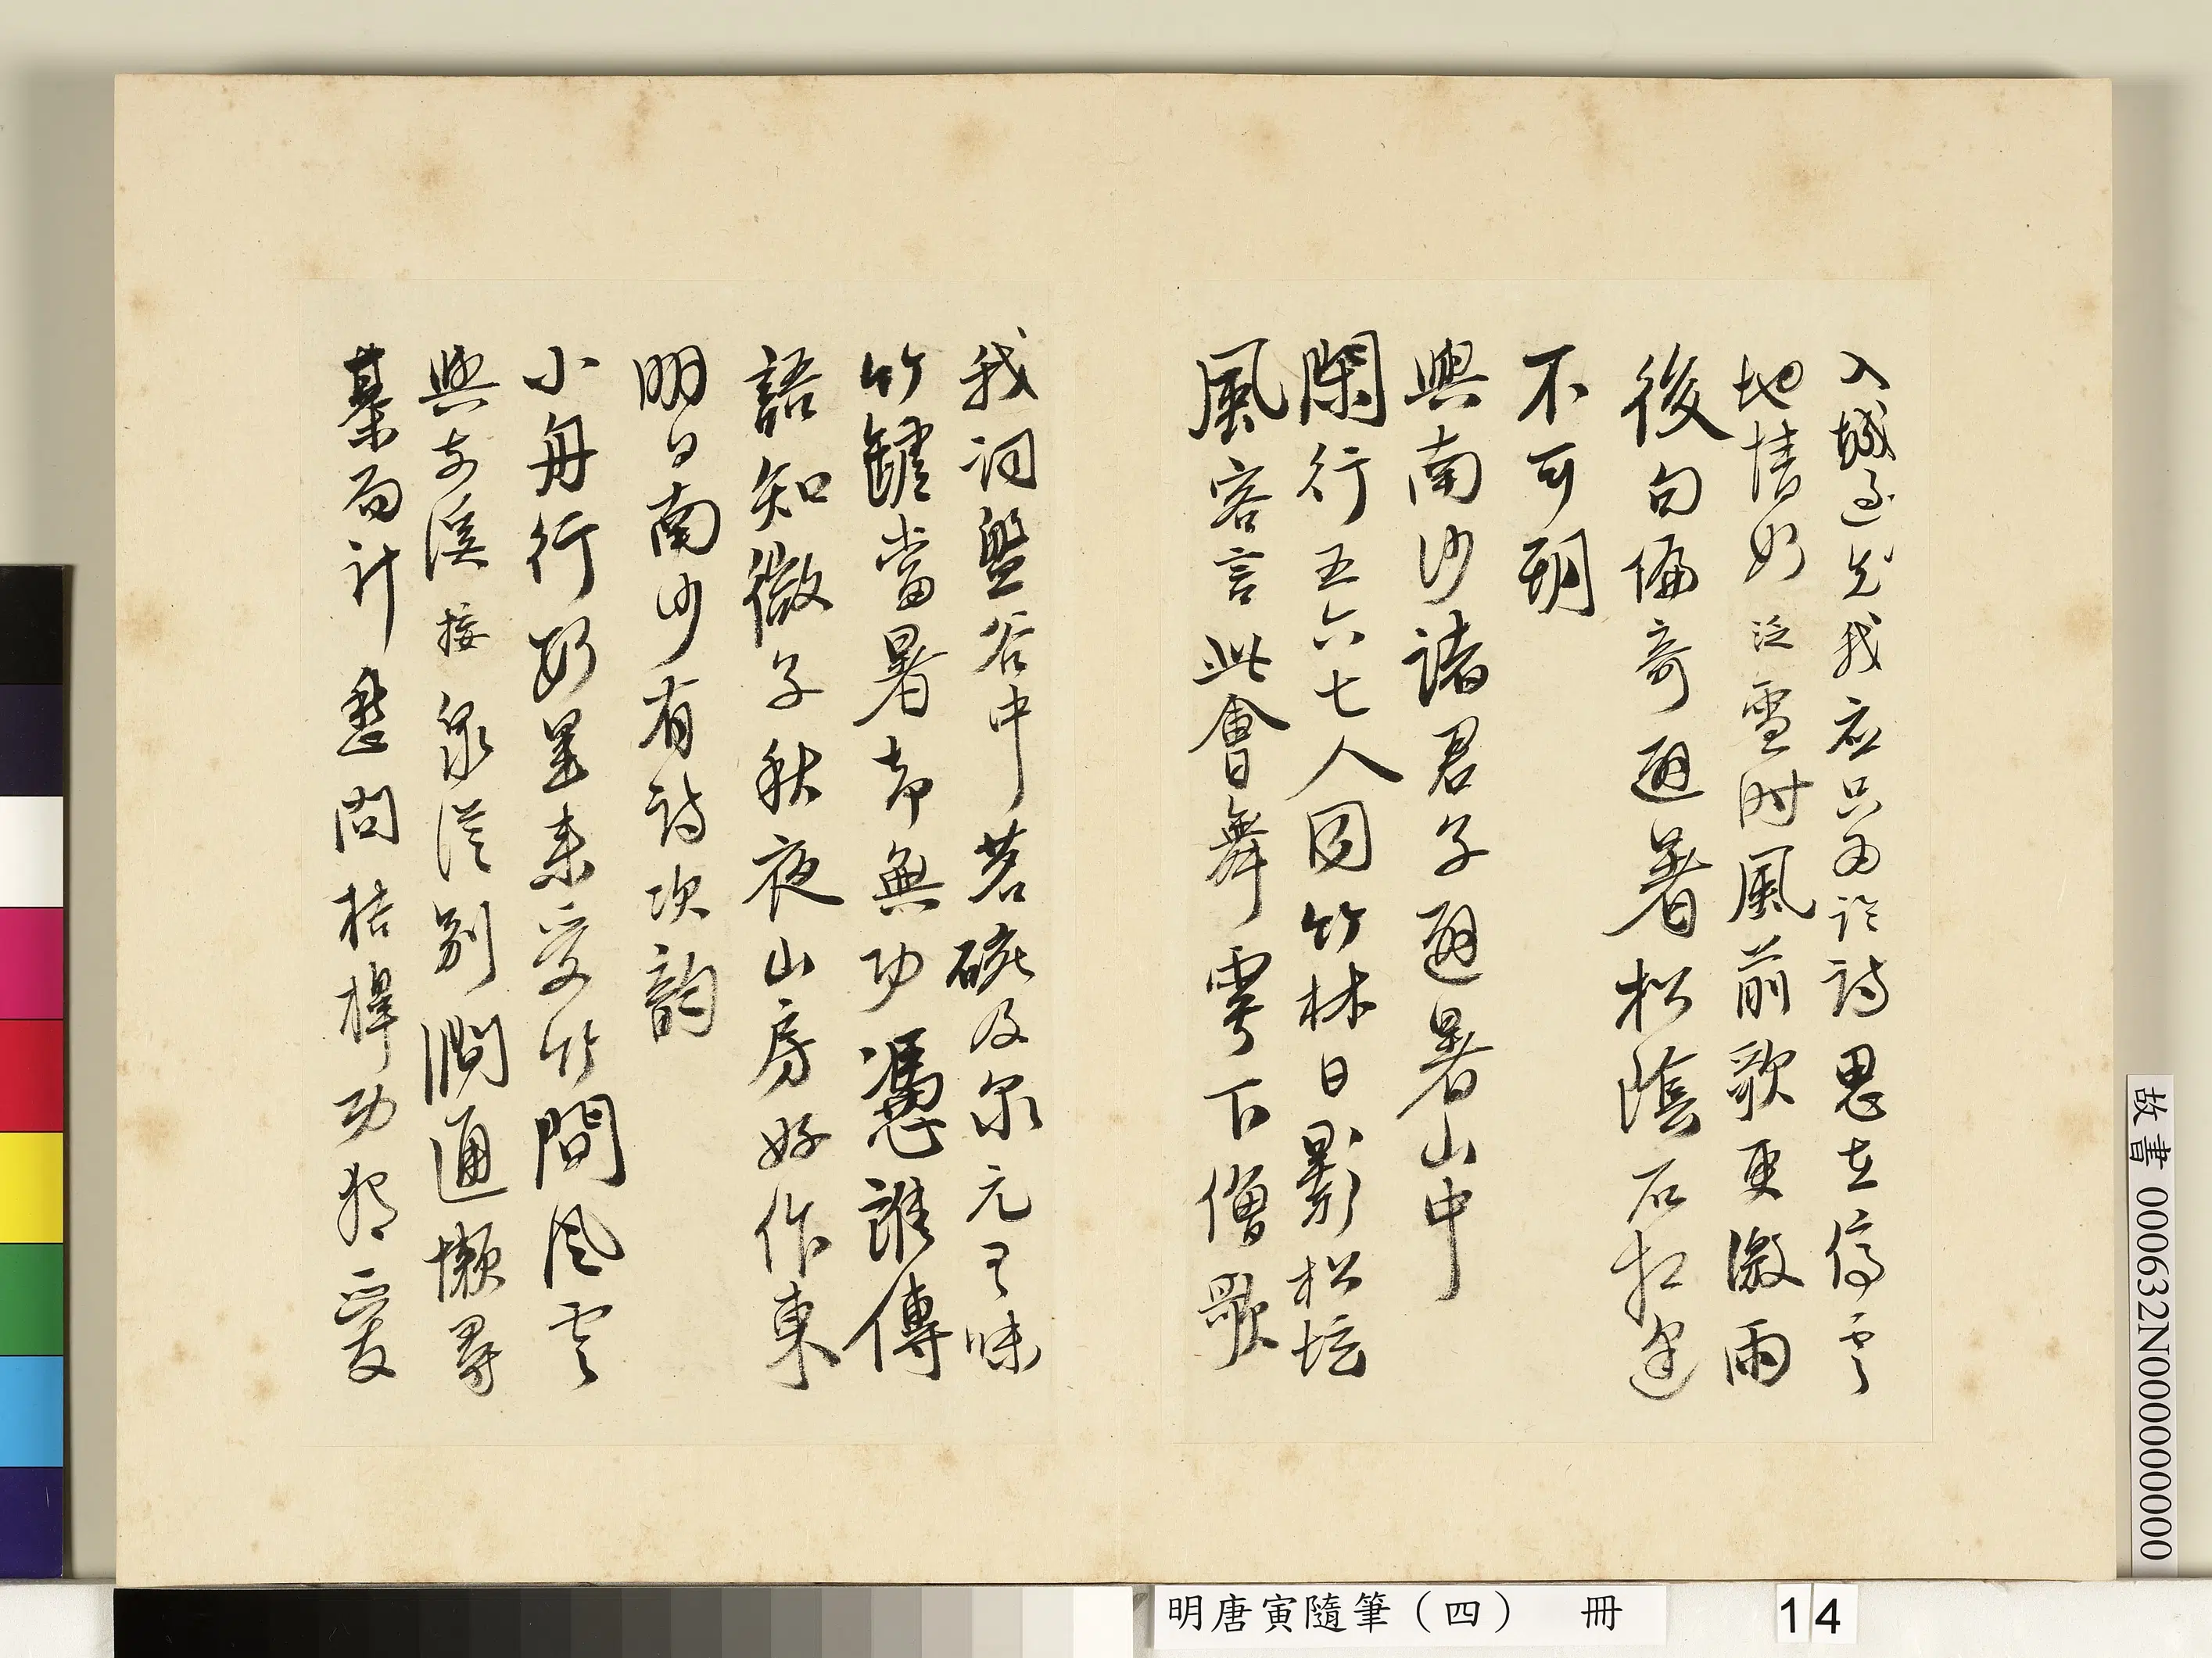 入城邊光我應只為詩思在停雲
地情如泛雪時風前歌更激雨
後句偏奇避暑松陰石狂逢
不可期
與南沙諸君子避暑山中
閑行五六七人同竹林日影松坛
風客言此會舞雩下僧歌
我詞盤谷中茗碗及泉元有味
竹罏當暑却無功憑誰傳
語知微子秋夜山房好作東
明日南沙有詩次韵
小舟行好是來受竹間風雲
與前溪接泉從別澗通懶尋
棊局計愁問桔槔功 愛
故書 000632N000000000
明唐寅隨筆(四) 冊
14